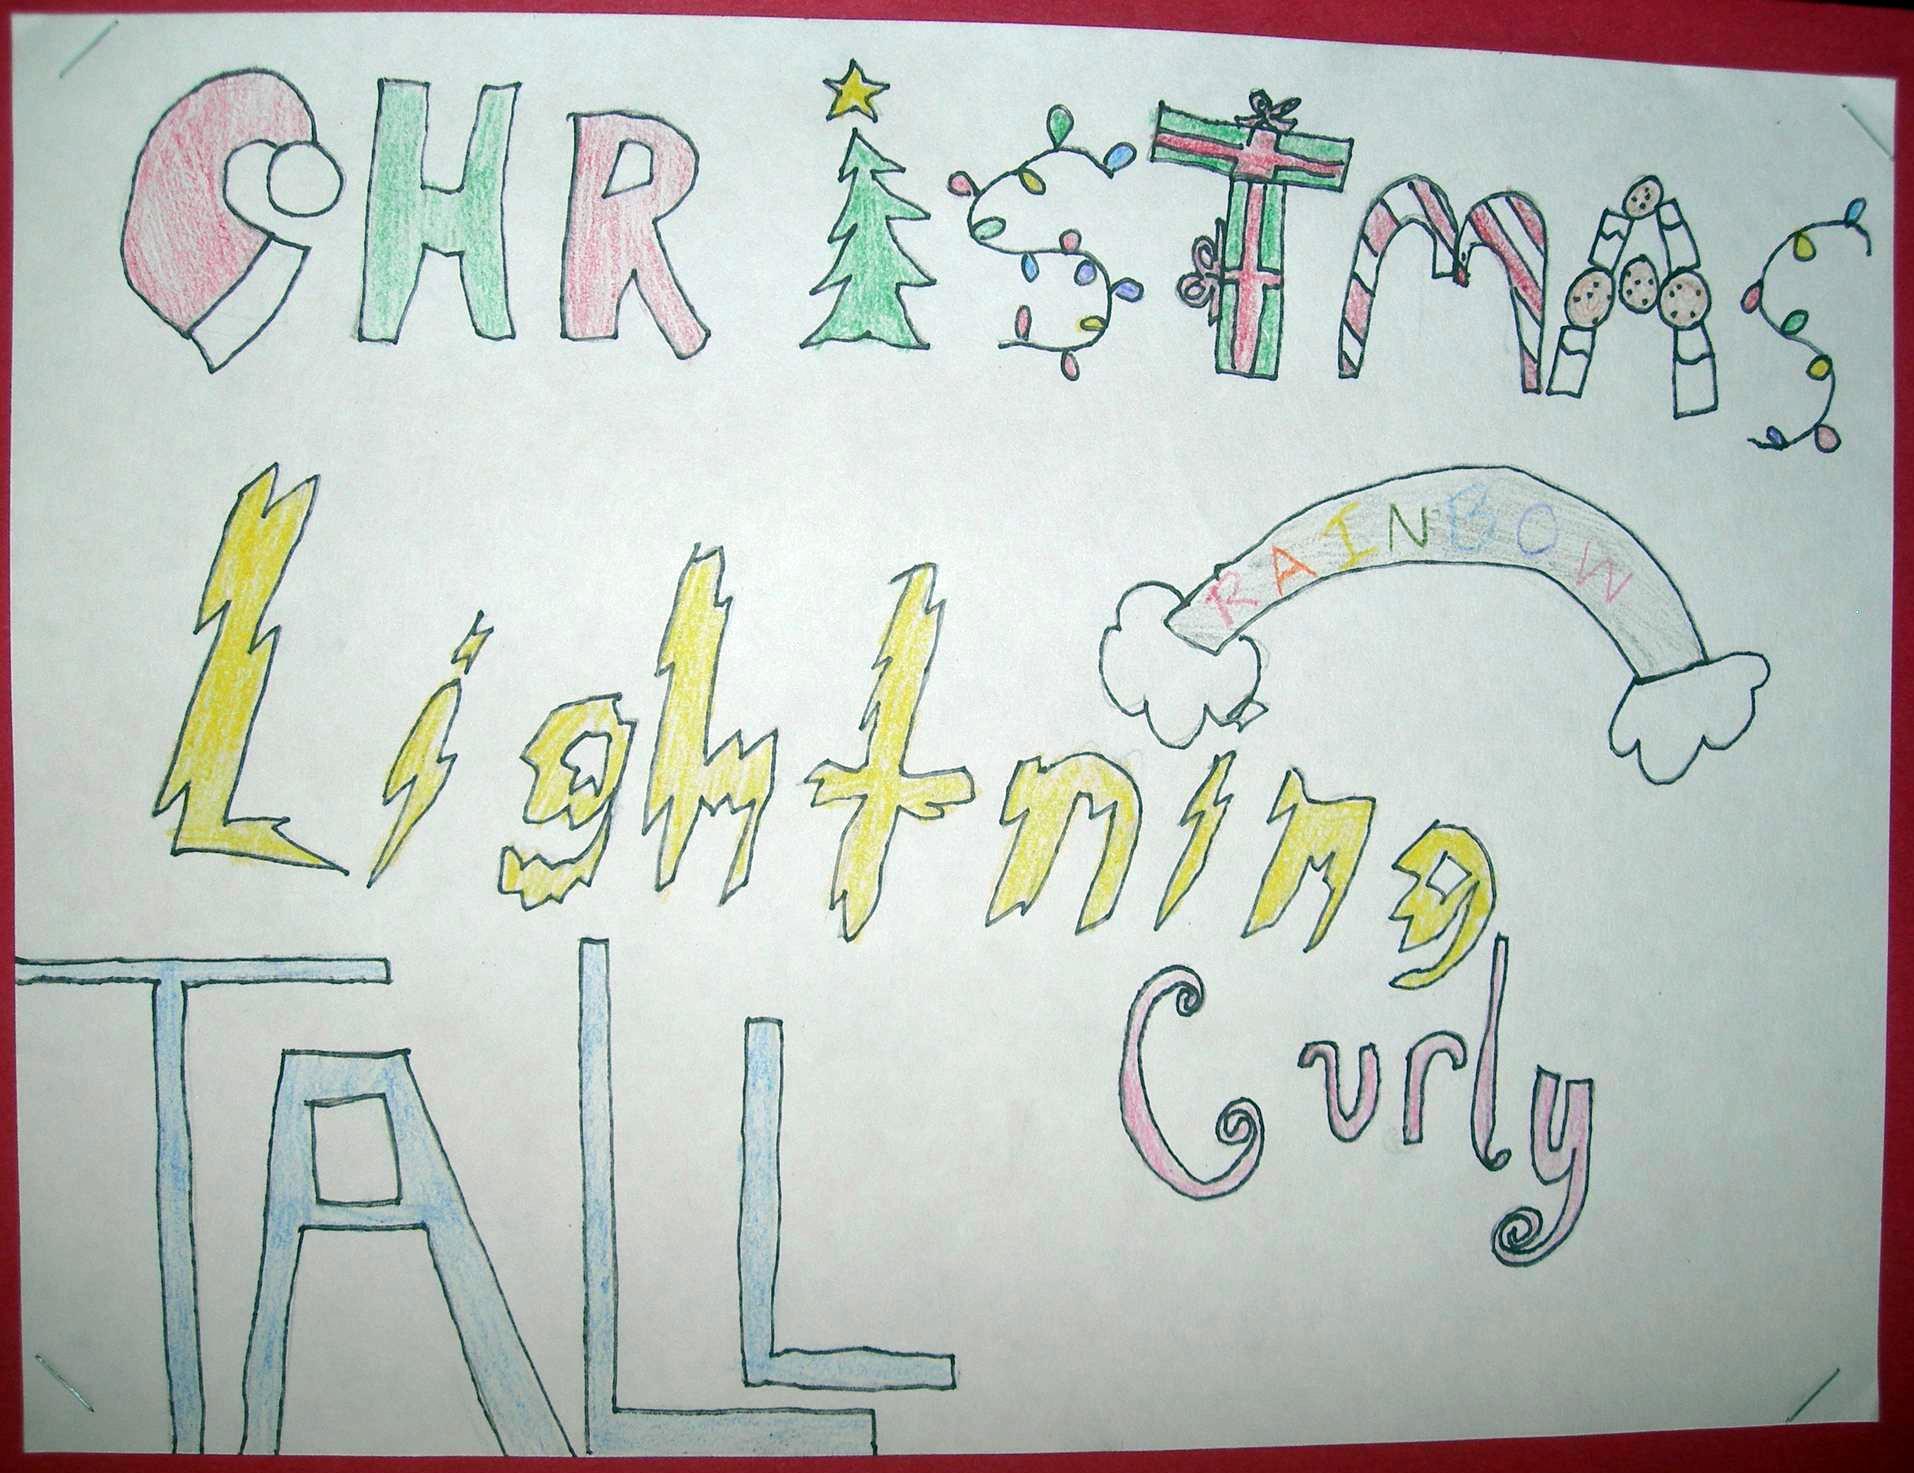 CHRISTMAS
RAINBOW
Lightning
TALL
Curly